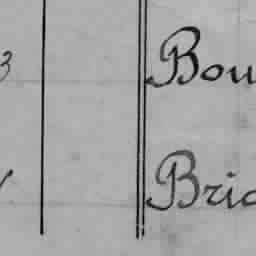 3 Bou
Bric